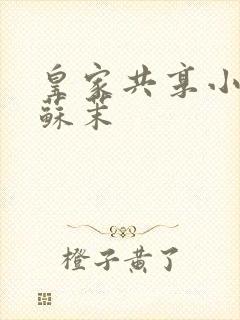 皇家共享小
蘇茉
橙子黄了